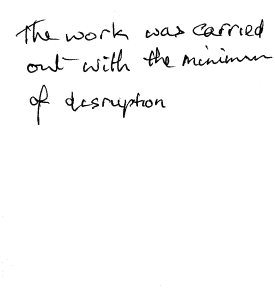 The work was carried
out with the minimum
of disruption